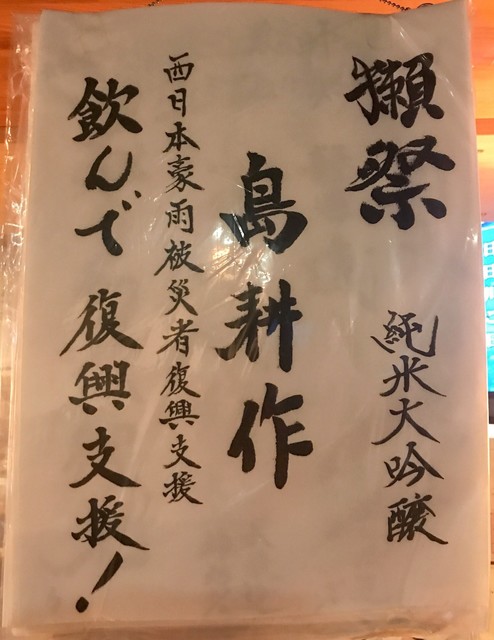 獺祭 純米大吟醸
島耕作
西日本豪雨被災者復興支援
飲んで復興支援!